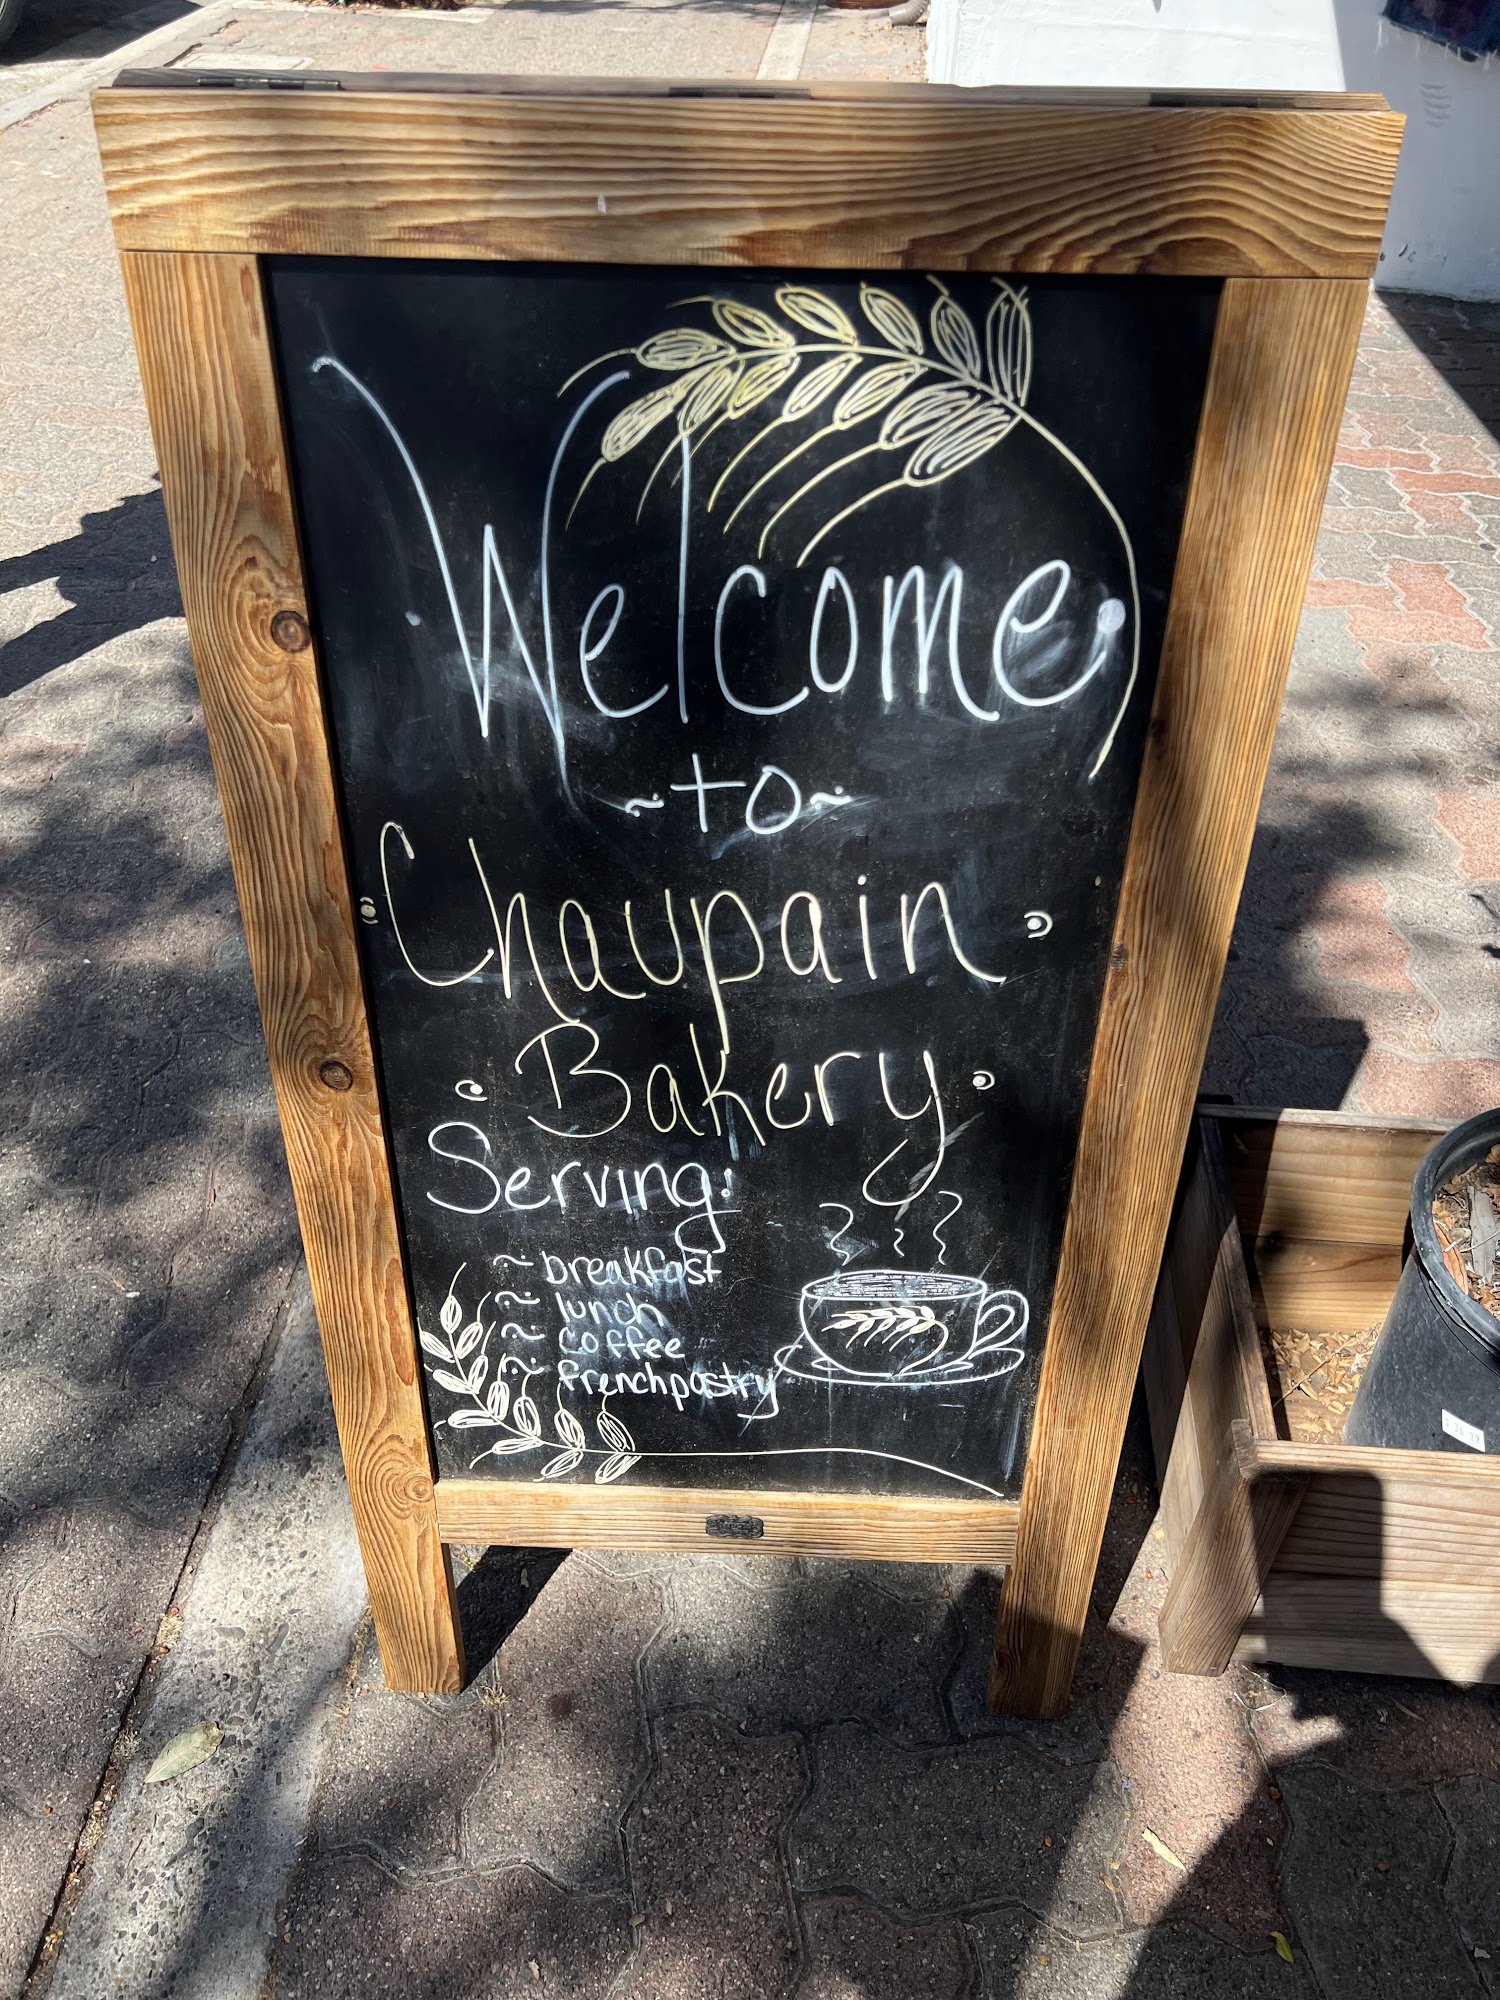 Welcome
~to~
Chaupain
Bakery
Serving:
~ breakfast
~ lunch
~ coffee
~ french pastry